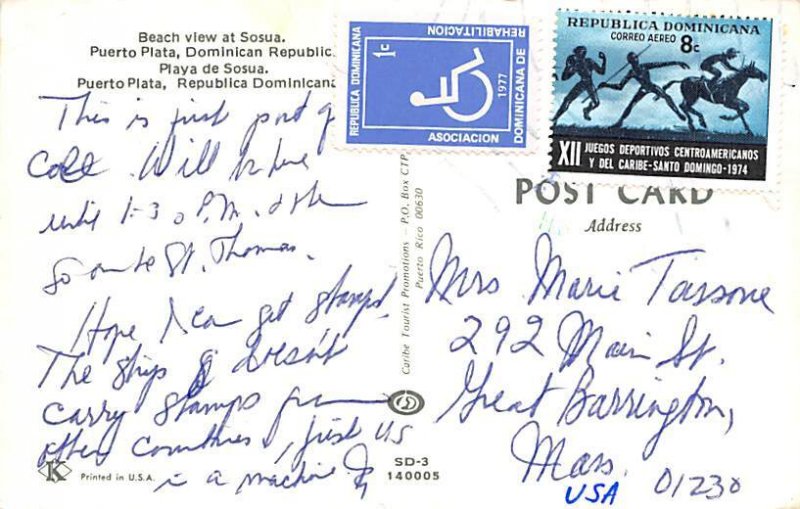 Beach view at Sosua.
Puerto Plata, Dominican Republic
Playa de Sosua.
Puerto Plata, Republica Dominicana
This is first port of
Call. Will be here
until 1-30 P.M. &
on to St. Thomas.
Hope I can get stamps.
The ships doesn't
carry stamps from
other countries, just US
in a machine
K
Printed in U.S.A.
SD-3
140005
Caribe Tourist Promotions - P.O. Box CTP,
Puerto Rico 00630
REPUBLICA DOMINICANA
1c
1977
ASOCIACION
DOMINICANA DE
REHABILITACION
REPUBLICA DOMINICANA
CORREO AEREO 8c
XII JUEGOS DEPORTIVOS CENTROAMERICANOS
Y DEL CARIBE-SANTO DOMINGO-1974
POST CARD
Address
Mrs Marie Tassone
292 Main St.
Great Barrington,
Mass. 01230
USA